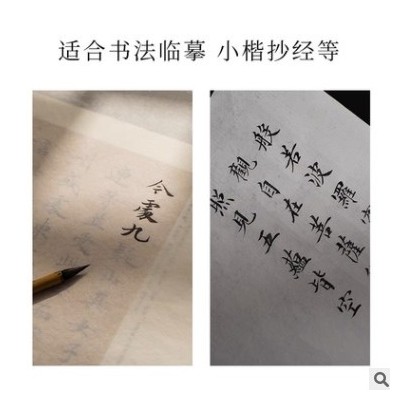 适合书法临摹 小楷抄经等
令
九
般若波羅
觀自在菩薩
照見五蘊皆空